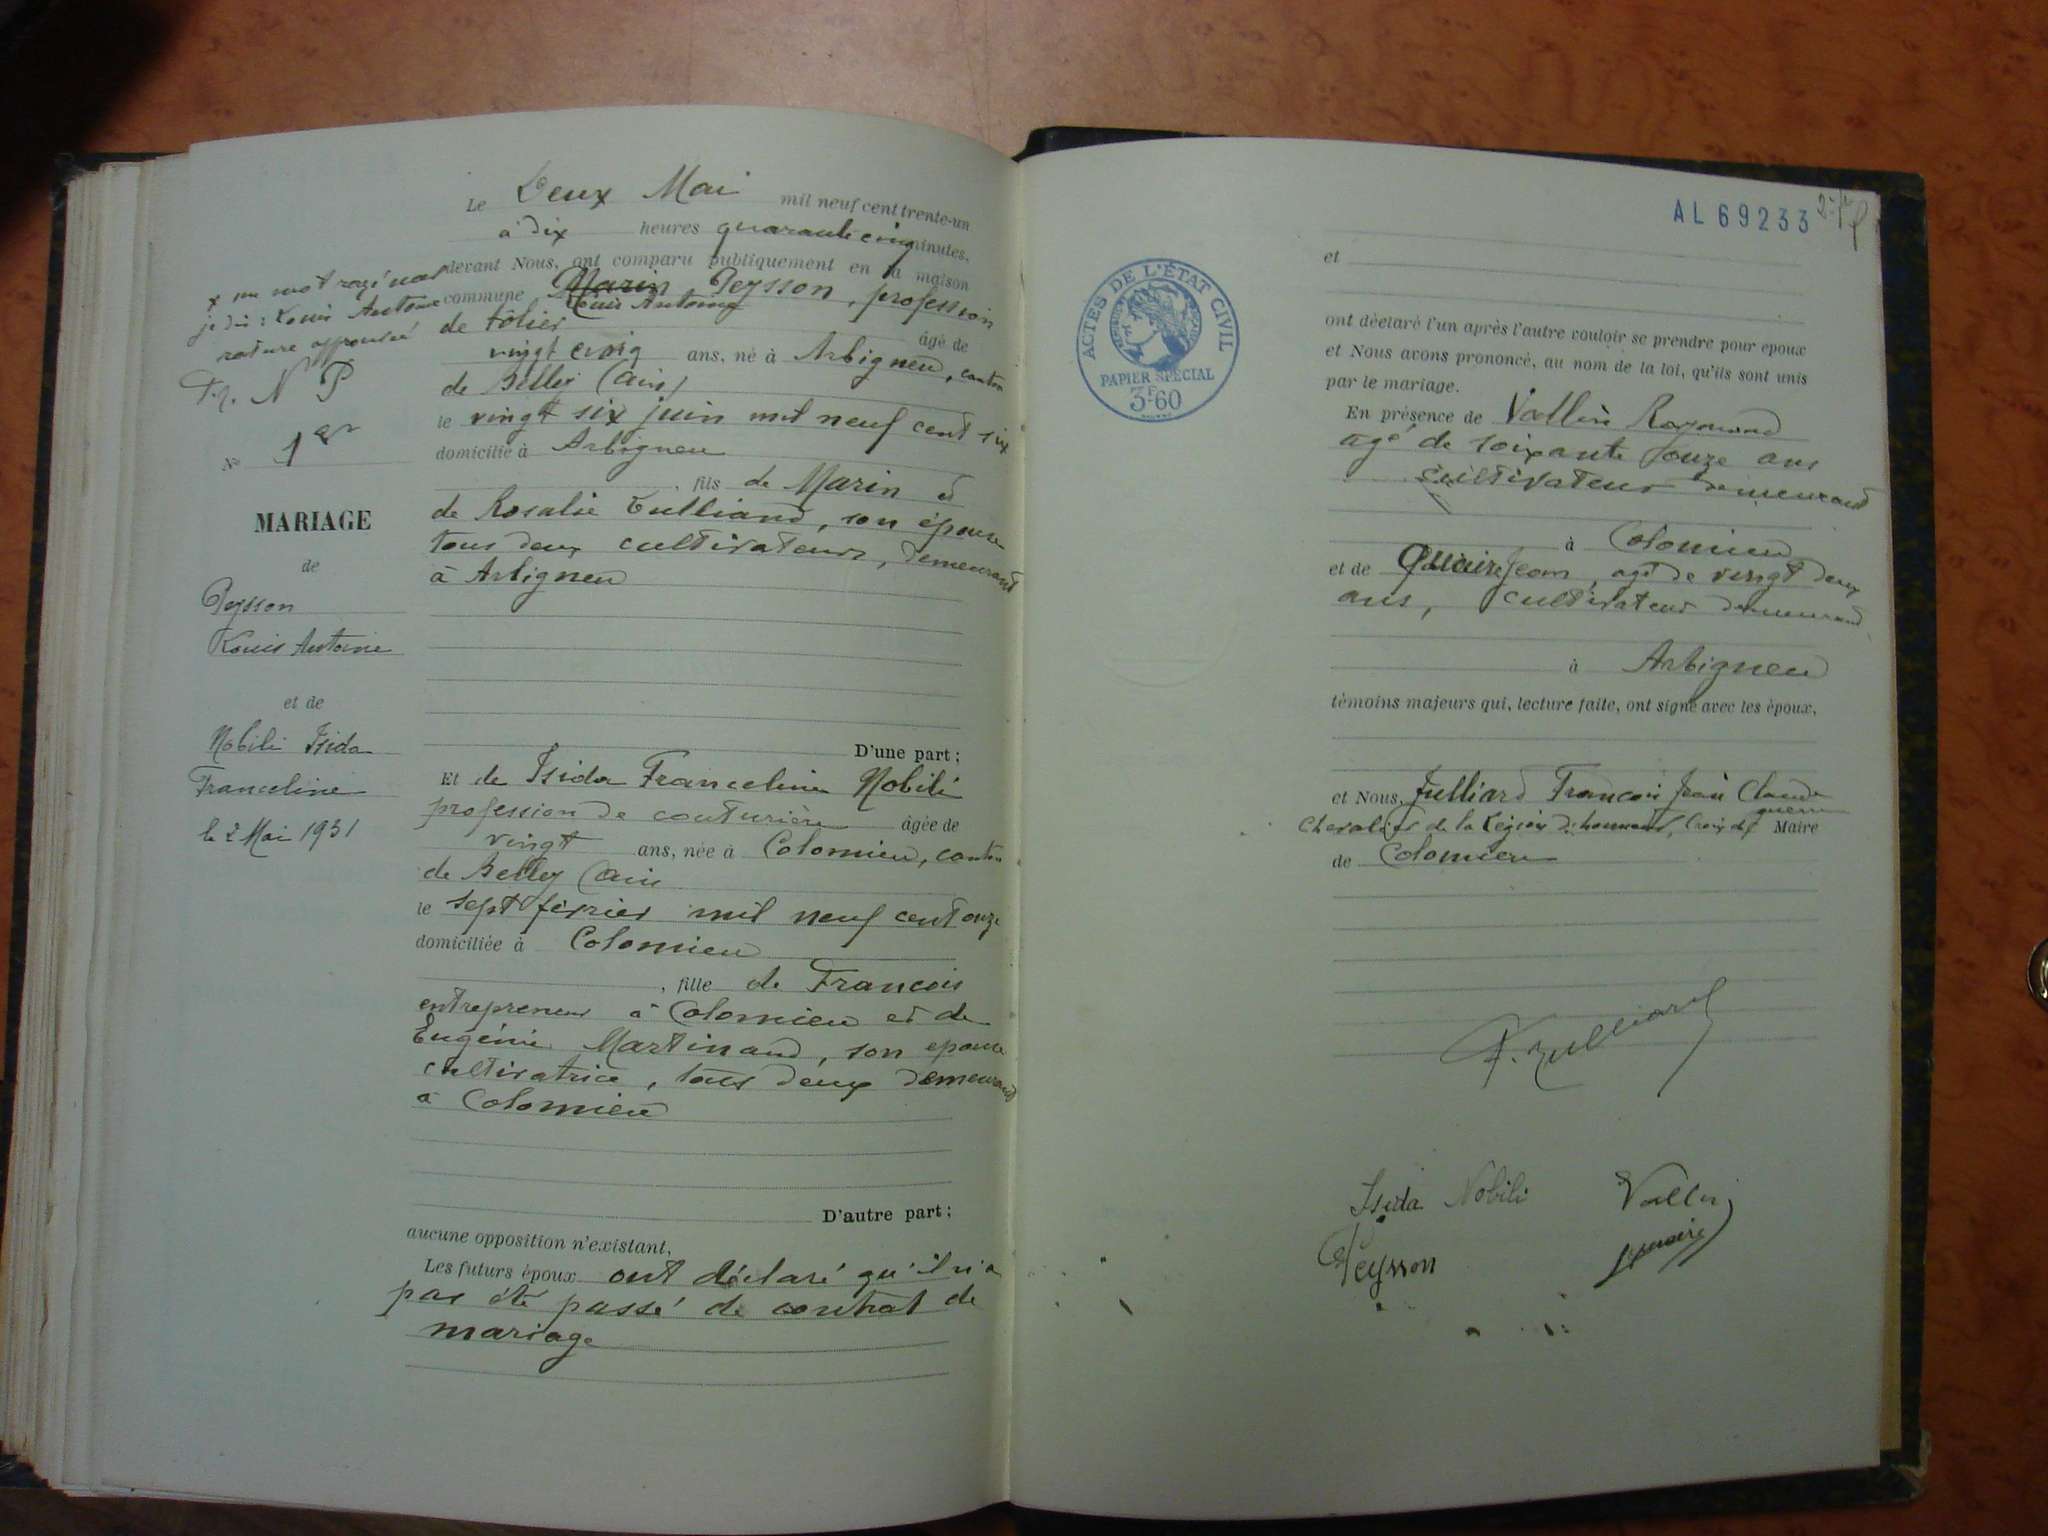 Le Deux Mai mil neuf cent trente-un
à dix heures quarante cinq minutes,
devant Nous, ont comparu publiquement en la maison
commune Marin Peysson, profession
Louis Antoine
de tôlier âgé de
vingt cinq ans, né à Arbigneu, canton
de Belley (Ain)
le vingt six juin mil neuf cent six
domicilié à Arbigneu
, fils de Marin et
de Rosalie Tulliand, son épouse
tous deux cultivateurs, demeurant
à Arbigneu
D'une part ;
Et de Isida Franceline Nobili
profession de couturière âgée de
vingt ans, née à Colomieu, canton
de Belley (Ain
le sept février mil neuf cent onze
domiciliée à Colomieu
, fille de François
entrepreneur à Colomieu et de
Eugénie Martinand, son épouse
cultivatrice, tous deux demeurant
à Colomieu
D'autre part ;
aucune opposition n'existant,
Les futurs époux ont déclaré qu'il n'a
pas été passé de contrat de
mariage
x un mot rayé nul
je dis : Louis Antoine
rature approuvé
N P
No 1er
MARIAGE
de
Peysson
Louis Antoine
et de
Nobili Isida
Franceline
le 2 Mai 1931
AL 69233
ACTES DE L'ÉTAT CIVIL
PAPIER SPÉCIAL
3F60
et
ont déclaré l'un après l'autre vouloir se prendre pour époux
et Nous avons prononcé, au nom de la loi, qu'ils sont unis
par le mariage.
En présence de Vallin Raymond
agé de soixante douze ans
cultivateur demeurant
à Colomieu
et de Jean, agé de vingt deux
ans, cultivateur demeurant
à Arbigneu
témoins majeurs qui, lecture faite, ont signé avec les époux,
et Nous, Julliard François Jean Claude
Chevalier de la Légion d'honneur, Croix de guerre Maire
de Colomieu
F. Julliard
Isida Nobili
Vallin
Peysson